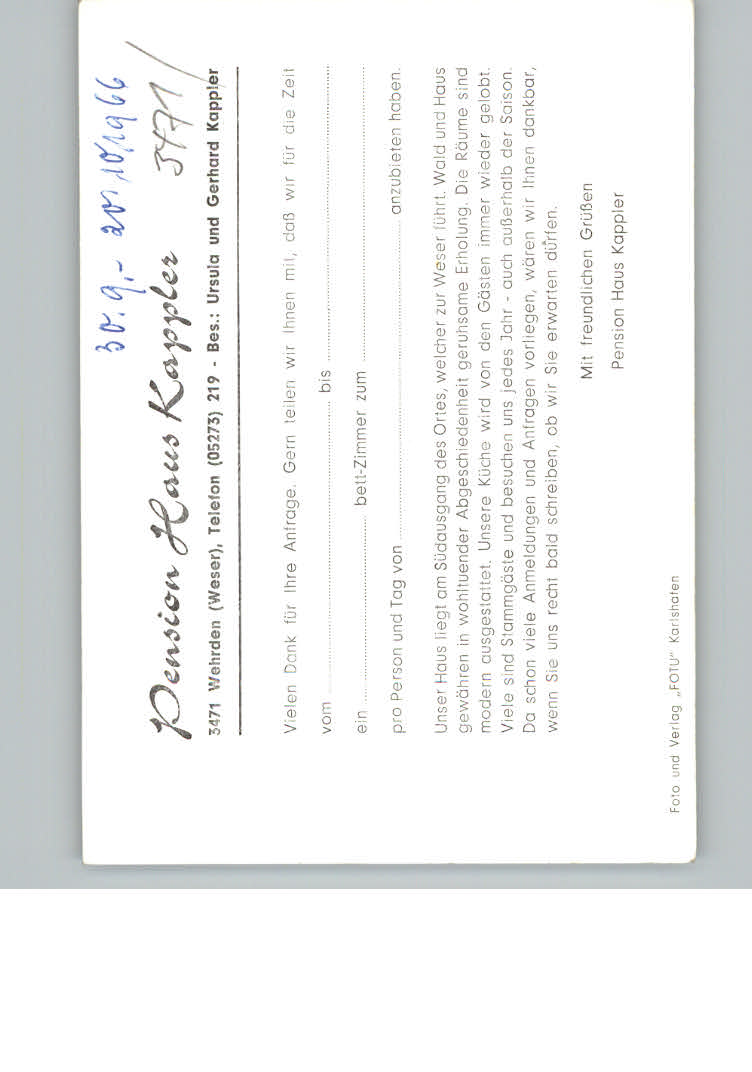 30.9.- 20.10.1966
Pension Haus Kappler 3471/
3471 Wehrden (Weser), Telefon (05273) 219 - Bes.: Ursula und Gerhard Kappler
Vielen Dank für Ihre Anfrage. Gern teilen wir Ihnen mit, daß wir für die Zeit
vom ........ bis ........
ein ........ bett-Zimmer zum ........
pro Person und Tag von ........ anzubieten haben.
Unser Haus liegt am Südausgang des Ortes, welcher zur Weser führt. Wald und Haus
gewähren in wohltuender Abgeschiedenheit geruhsame Erholung. Die Räume sind
modern ausgestattet. Unsere Küche wird von den Gästen immer wieder gelobt.
Viele sind Stammgäste und besuchen uns jedes Jahr - auch außerhalb der Saison.
Da schon viele Anmeldungen und Anfragen vorliegen, wären wir Ihnen dankbar,
wenn Sie uns recht bald schreiben, ob wir Sie erwarten dürfen.
Mit freundlichen Grüßen
Pension Haus Kappler
Foto und Verlag „FOTU" Karlshafen